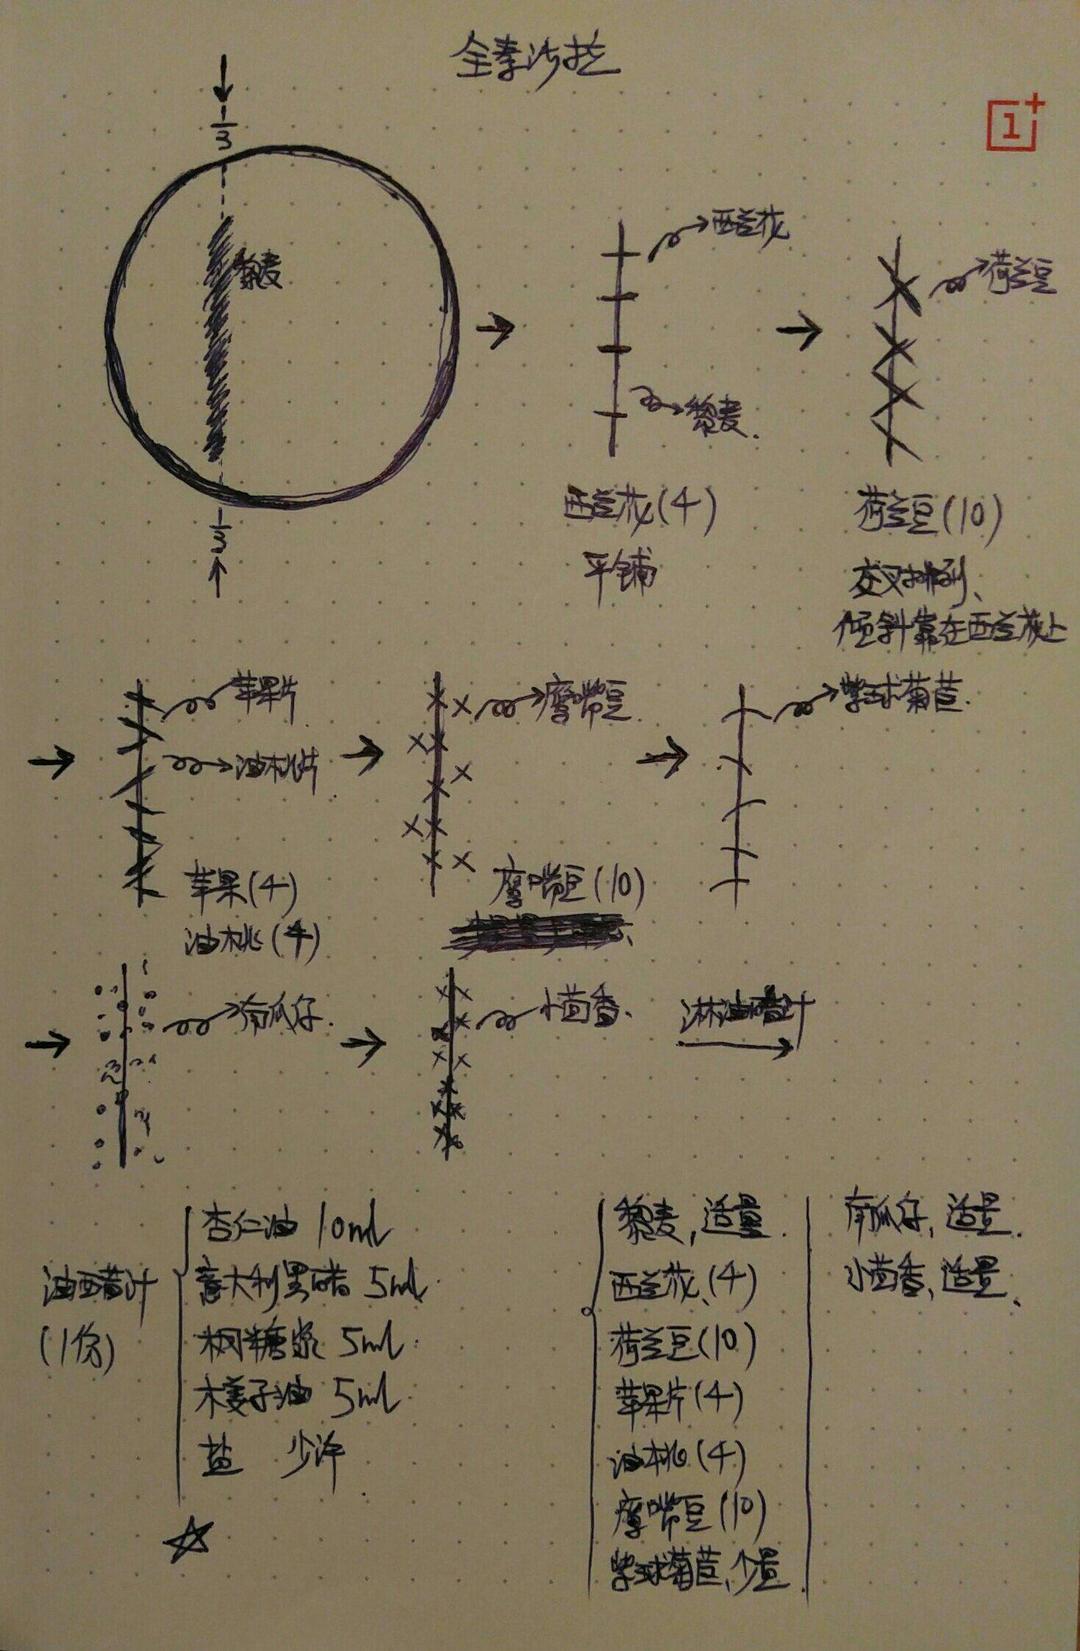 全素沙拉
1+
1/3
藜麦
1/3
西兰花
藜麦.
西兰花(4)
平铺
荷兰豆
荷兰豆(10)
交叉排列、
倾斜靠在西兰花上
苹果片
油桃片
苹果(4)
油桃(4)
鹰嘴豆
鹰嘴豆(10)
紫球菊苣.
南瓜仔.
小茴香.
淋油醋叶
油醋叶
(1份)
杏仁油 10ml
意大利黑醋 5ml.
枫糖浆 5ml.
木姜子油 5ml
盐 少许
藜麦,适量.
西兰花.(4)
荷兰豆(10)
苹果片(4)
油桃(4)
鹰嘴豆(10)
紫球菊苣,少量.
南瓜仔,适量.
小茴香,适量.